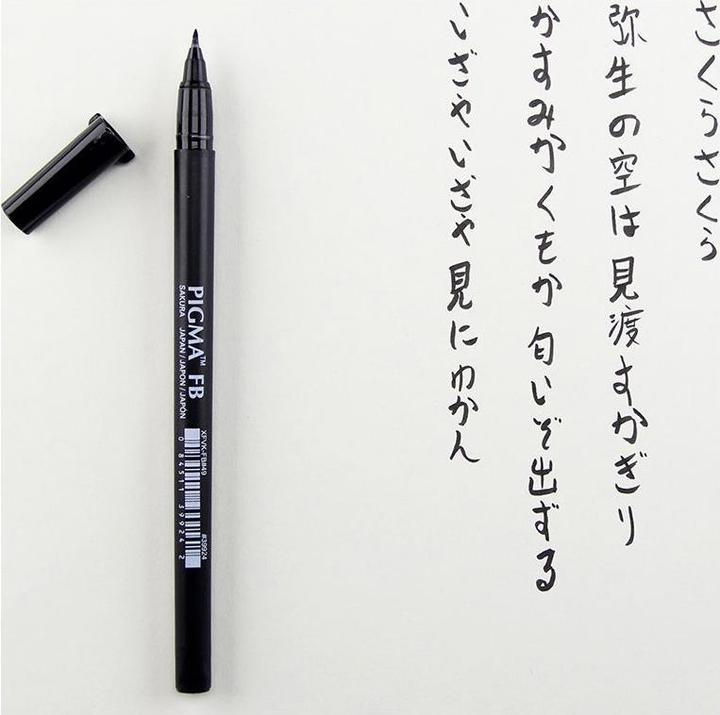 さくらさくら
弥生の空は見渡すかぎり
かすみかくもか匂いぞ出ずる
いざやいざや見にゆかん
PIGMA™ FB
SAKURA JAPAN/JAPON/JAPÓN
XFVK-FB#49
#39924
0 84511 39924 2